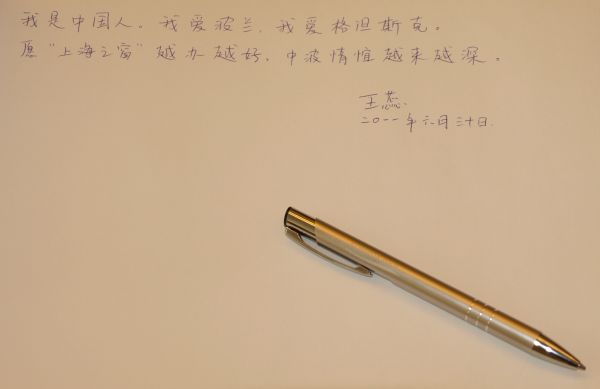 我是中国人。我爱波兰，我爱格但斯克。
愿“上海之窗”越办越好，中波情谊越来越深。
王蕊
二〇一一年六月三十日